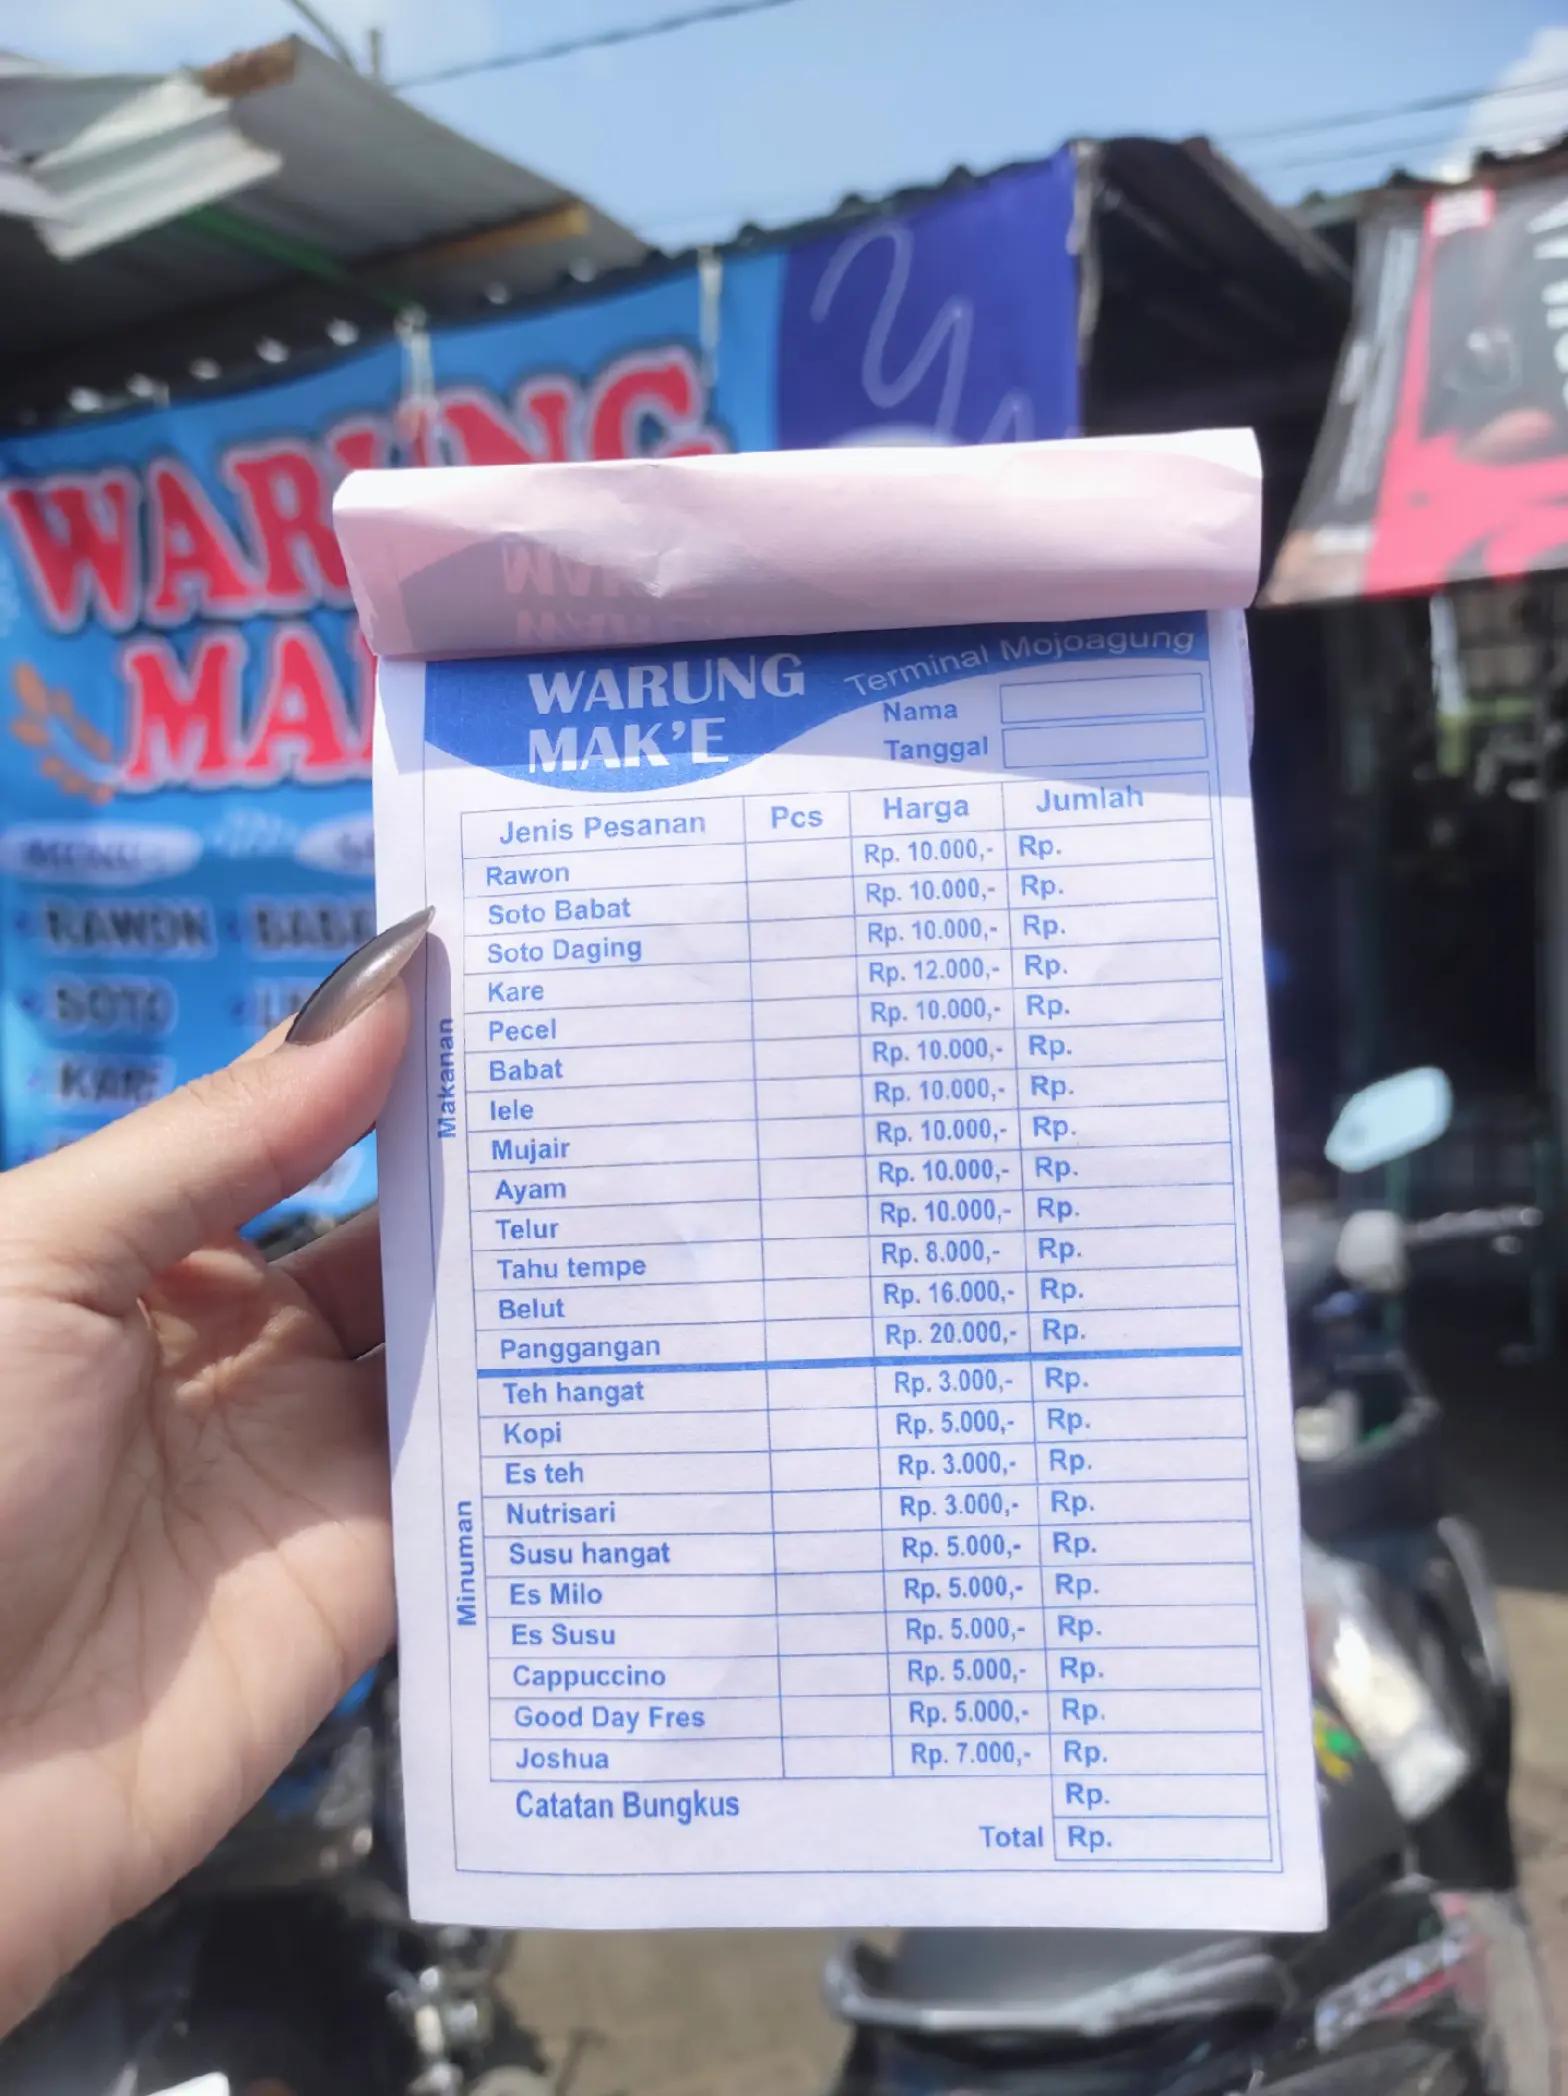 WARUNG
MA
RAWON
SOTO
KARE
WARUNG
MAK'E
Terminal Mojoagung
Nama
Tanggal
Jenis Pesanan Pcs Harga Jumlah
Makanan
Rawon Rp. 10.000,- Rp.
Soto Babat Rp. 10.000,- Rp.
Soto Daging Rp. 10.000,- Rp.
Kare Rp. 12.000,- Rp.
Pecel Rp. 10.000,- Rp.
Babat Rp. 10.000,- Rp.
lele Rp. 10.000,- Rp.
Mujair Rp. 10.000,- Rp.
Ayam Rp. 10.000,- Rp.
Telur Rp. 10.000,- Rp.
Tahu tempe Rp. 8.000,- Rp.
Belut Rp. 16.000,- Rp.
Panggangan Rp. 20.000,- Rp.
Minuman
Teh hangat Rp. 3.000,- Rp.
Kopi Rp. 5.000,- Rp.
Es teh Rp. 3.000,- Rp.
Nutrisari Rp. 3.000,- Rp.
Susu hangat Rp. 5.000,- Rp.
Es Milo Rp. 5.000,- Rp.
Es Susu Rp. 5.000,- Rp.
Cappuccino Rp. 5.000,- Rp.
Good Day Fres Rp. 5.000,- Rp.
Joshua Rp. 7.000,- Rp.
Catatan Bungkus Rp.
Total Rp.